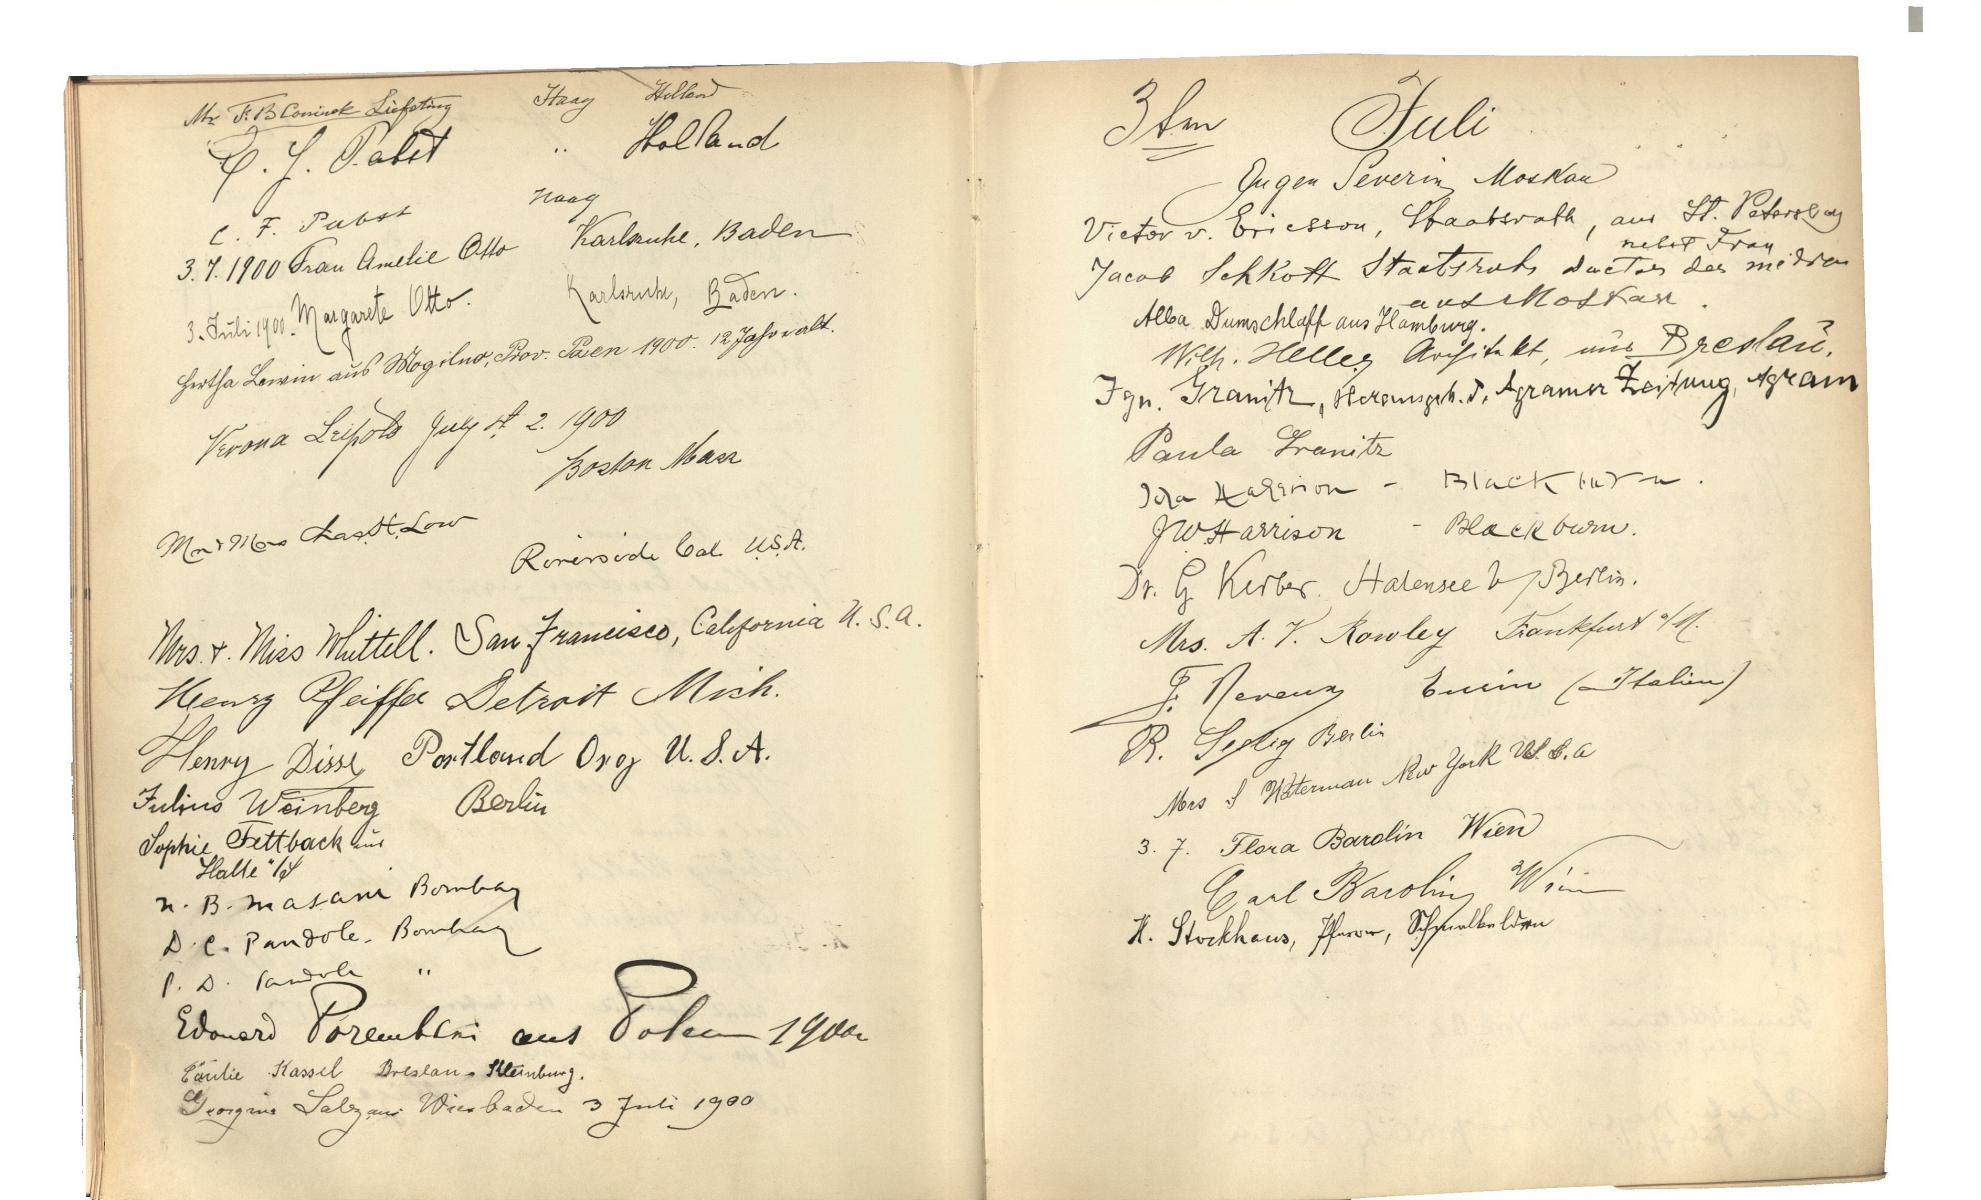 Mr F. B. Coninck Liefsting Haag Holland
C. J. Pabst " Holland
C. F. Pabst Haag
3.7.1900 Frau Amelie Otto Karlsruhe, Baden
3. Juli 1900. Margarete Otto. Karlsruhe, Baden.
Hertha Lewin aus Mogilno, Prov. Posen 1900. 12 Jahre alt.
Verona Leipold July st 2. 1900
Boston Mass
Mr & Mrs Chas. H. Low
Riverside Cal. U.S.A.
Mrs. & Miss Whittell. San Francisco, California U.S.A.
Henry Pfeiffer Detroit Mich.
Henry Disse Portland Oreg U.S.A.
Julius Weinberg Berlin
Sophie Fettback aus
Halle a/S
N. B. Masani Bombay
D. C. Pandole. Bombay
P. D. Pandole "
Edouard Porembski aus Polen 1900
Cäcilie Kassel Breslau - Kleinburg.
Georgine Salz aus Wiesbaden 3 Juli 1900
3ten Juli
Eugen Severin Moskau
Victor v. Ericsson, Staatsrath, aus St. Petersburg
nebst Frau
Jacob Schkott Staatsrath doctor der medicin
aus Moskau.
Alba Dumschlaff aus Hamburg.
Wilh. Heller Architekt, aus Breslau.
Ign. Granitz, Herausgeb. d. Agramer Zeitung, Agram
Paula Granitz
Ida Harrison - Blackburn.
J W Harrison - Blackburn.
Dr. G Kerber. Halensee b/Berlin.
Mrs. A. V. Rowley Frankfurt a/M.
J. (Italien)
R. Berlin
Mrs S Waterman New York U.S.A
3. 7. Flora Barolin Wien
Carl Barolin Wien
H. Stockhaus, Pfarrer, Schmalkalden